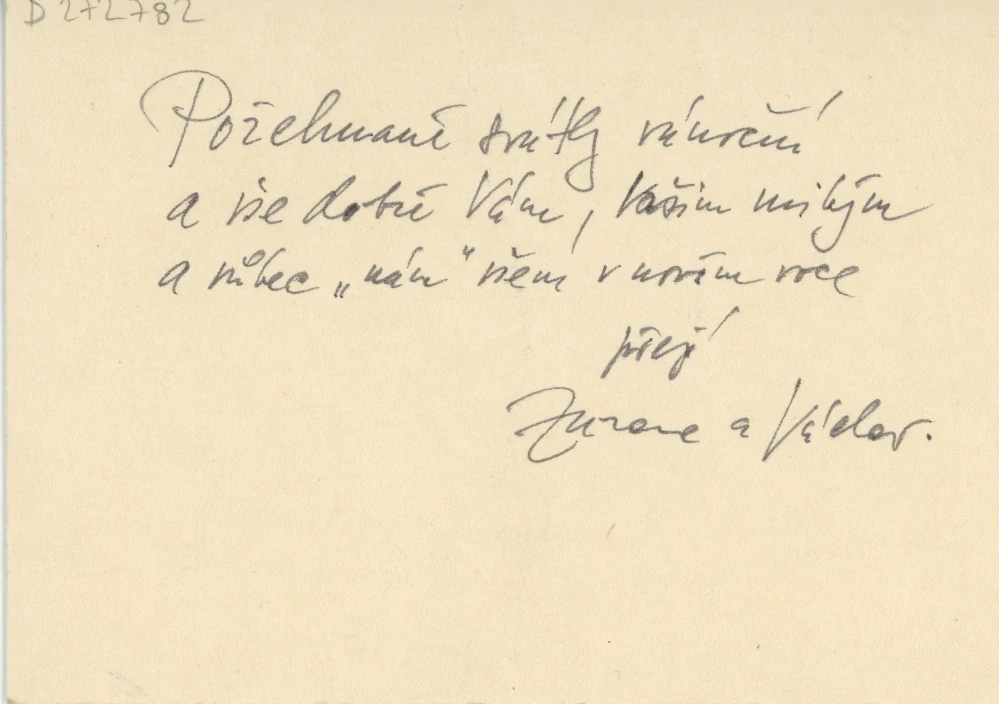 D 272782
Požehnané svátky vánoční
a vše dobré Vám, Vašim milým
a vůbec „nám" všem v novém roce
přejí
Zuzana a Václav.